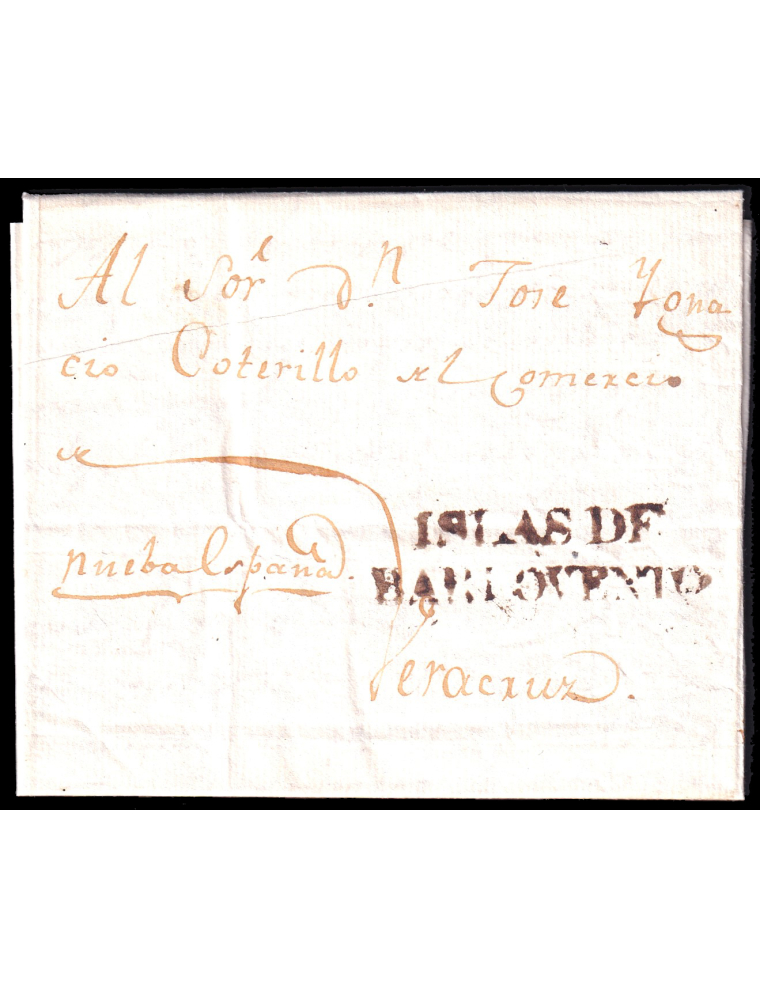 Al Sor.l d.n Jose Ygna
cio Coterillo del Comercio
de
nueba España.
ISLAS DE
BARLOVENTO
Veracruz.